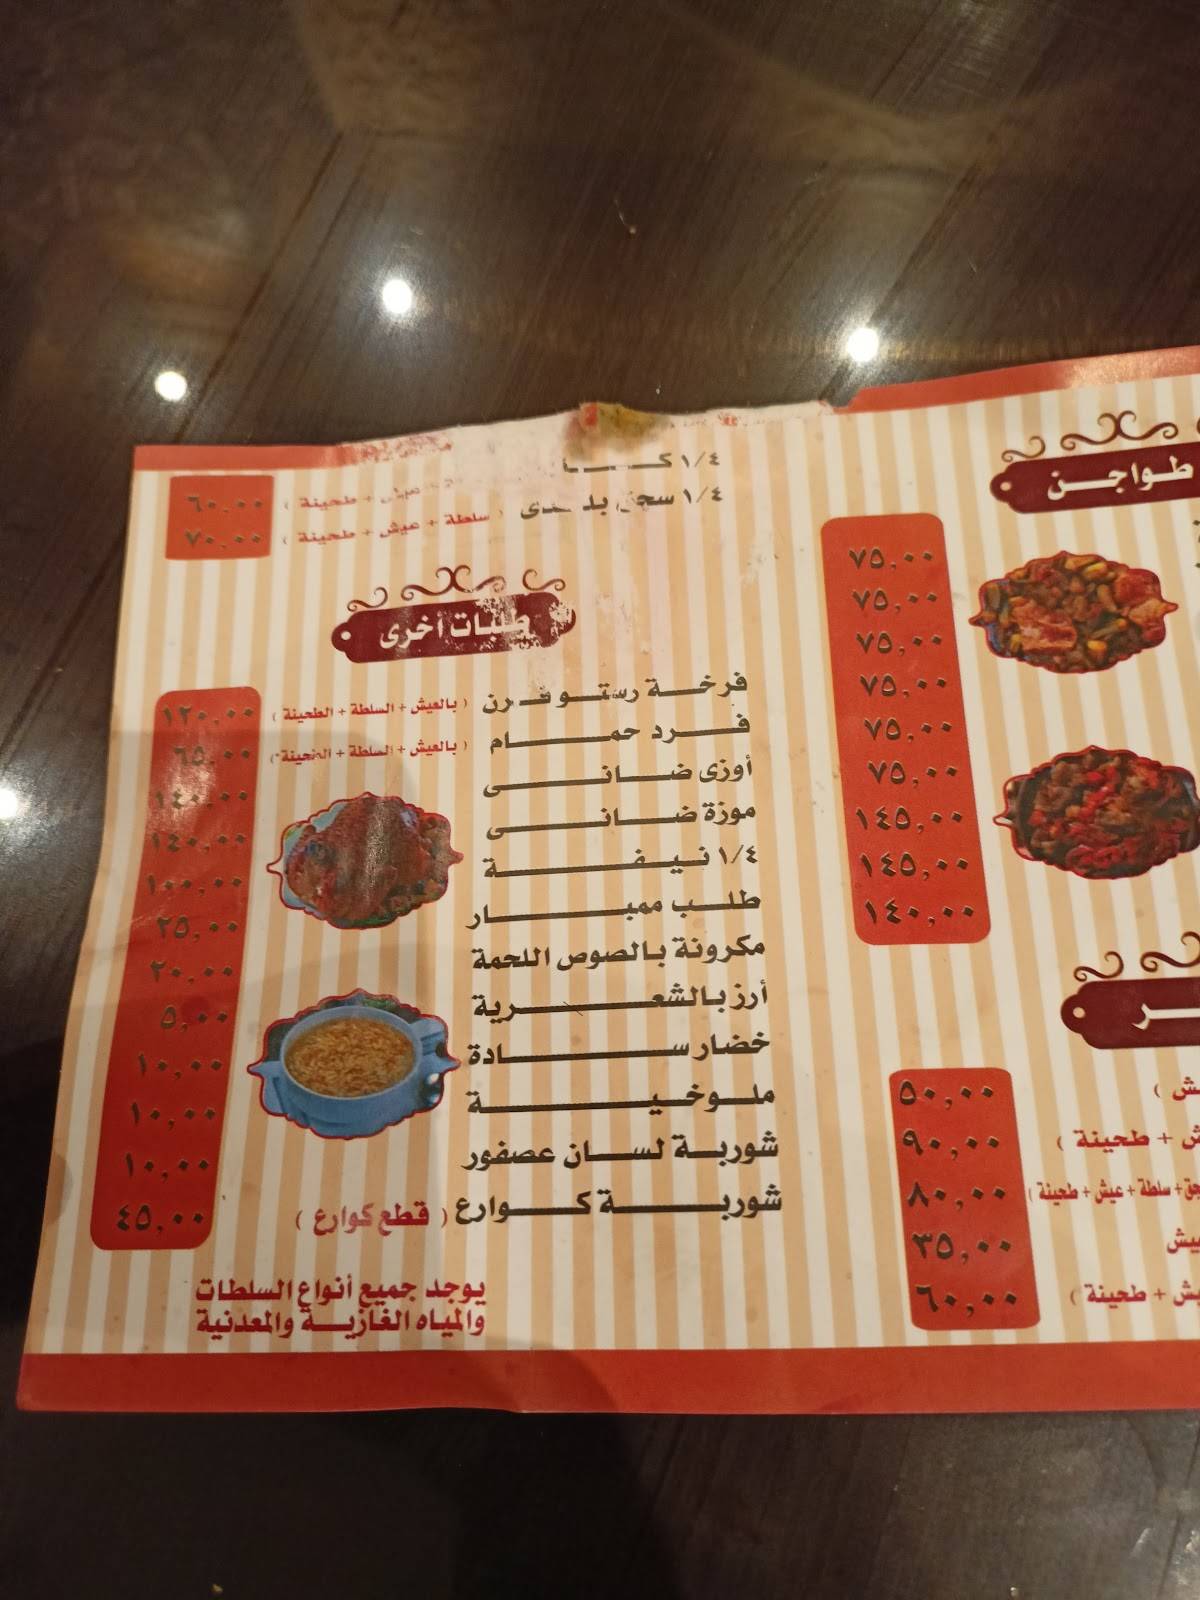 طواجن
٧٥,٠٠
٧٥,٠٠
٧٥,٠٠
٧٥,٠٠
٧٥,٠٠
٧٥,٠٠
١٤٥,٠٠
١٤٥,٠٠
١٤٠,٠٠
٥٠,٠٠
ش + طحينة ) ٩٠,٠٠
+ سلطة + عيش + طحينة ) ٨٠,٠٠
عيش ٣٥,٠٠
+ طحينة ) ٦٠,٠٠
١/٤ + عيش + طحينة ) ٦٠,٠٠
١/٤ سجق بلدى ( سلطة + عيش + طحينة ) ٧٠,٠٠
طلبات أخرى
فرخة رستو فرن ( بالعيش + السلطة + الطحينة ) ١٢٠,٠٠
فرد حمام ( بالعيش + السلطة + الطحينة ) ٦٥,٠٠
أوزى ضانى ١٤٠,٠٠
موزة ضانى ١٤٠,٠٠
١/٤ نيفة ١٠٠,٠٠
طلب ممبار ٢٥,٠٠
مكرونة بالصوص اللحمة ٢٠,٠٠
أرز بالشعرية ٥,٠٠
خضار سادة ١٠,٠٠
ملوخية ١٠,٠٠
شوربة لسان عصفور ١٠,٠٠
شوربة كوارع ( قطع كوارع ) ٤٥,٠٠
يوجد جميع أنواع السلطات
والمياه الغازية والمعدنية